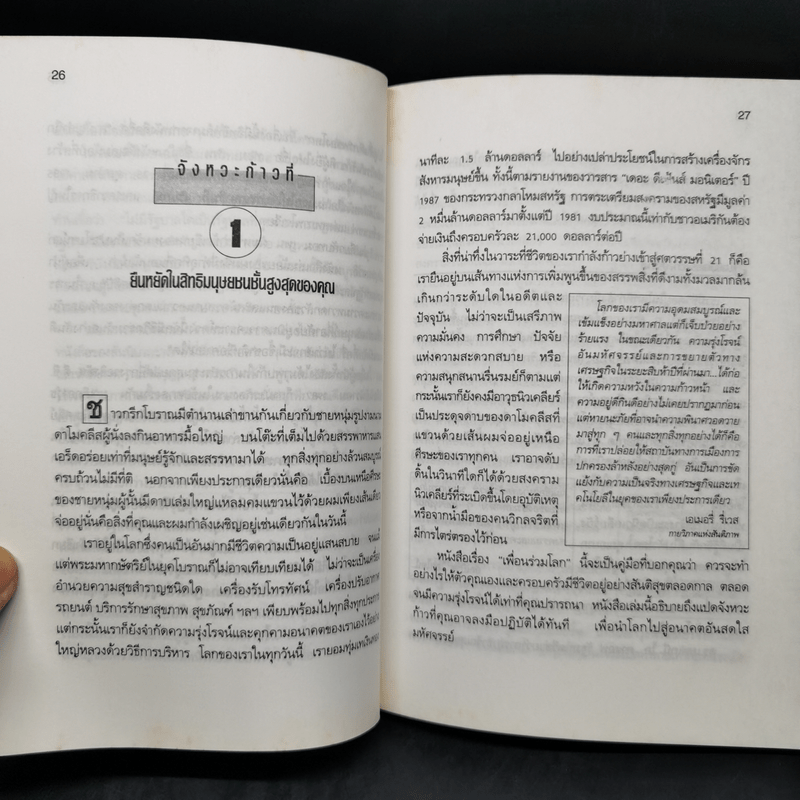 26
จังหวะก้าวที่
1
ยืนหยัดในสิทธิมนุษยชนชั้นสูงสุดของคุณ
ชาวกรีกโบราณมีตำนานเล่าขานกันเกี่ยวกับชายหนุ่มรูปงามนาม
ดาโมคลีสผู้นั่งลงกินอาหารมื้อใหญ่ บนโต๊ะที่เต็มไปด้วยสรรพาหารแสน
เอร็ดอร่อยเท่าที่มนุษย์รู้จักและสรรหามาได้ ทุกสิ่งทุกอย่างล้วนสมบูรณ์
ครบถ้วนไม่มีที่ติ นอกจากเพียงประการเดียวนั่นคือ เบื้องบนเหนือศีรษะ
ของชายหนุ่มผู้นั้นมีดาบเล่มใหญ่แหลมคมแขวนไว้ด้วยผมเพียงเส้นเดียว
จ่ออยู่นั่นคือสิ่งที่คุณและผมกำลังเผชิญอยู่เช่นเดียวกันในวันนี้
เราอยู่ในโลกซึ่งคนเป็นอันมากมีชีวิตความเป็นอยู่แสนสบาย จนแม้
แต่พระมหากษัตริย์ในยุคโบราณก็ไม่อาจเทียบเทียมได้ ไม่ว่าจะเป็นเครื่อง
อำนวยความสุขสำราญชนิดใด เครื่องรับโทรทัศน์ เครื่องปรับอากาศ
รถยนต์ บริการรักษาสุขภาพ สุขภัณฑ์ ฯลฯ เพียบพร้อมไปทุกสิ่งทุกประการ
แต่กระนั้นเราก็ยังจำกัดความรุ่งโรจน์และคุกคามอนาคตของเราเองไว้อย่าง
ใหญ่หลวงด้วยวิธีการบริหาร โลกของเราในทุกวันนี้ เรายอมทุ่มเทเงินทอง
27
นาทีละ 1.5 ล้านดอลลาร์ ไปอย่างเปล่าประโยชน์ในการสร้างเครื่องจักร
สังหารมนุษย์ขึ้น ทั้งนี้ตามรายงานของวารสาร "เดอะ ดีเฟนส์ มอนิเตอร์" ปี
1987 ของกระทรวงกลาโหมสหรัฐ การตระเตรียมสงครามของสหรัฐมีมูลค่า
2 หมื่นล้านดอลลาร์มาตั้งแต่ปี 1981 งบประมาณนี้เท่ากับชาวอเมริกันต้อง
จ่ายเงินถึงครอบครัวละ 21,000 ดอลลาร์ต่อปี
สิ่งที่น่าทึ่งในวาระที่ชีวิตของเรากำลังก้าวย่างเข้าสู่ศตวรรษที่ 21 ก็คือ
เรายืนอยู่บนเส้นทางแห่งการเพิ่มพูนขึ้นของสรรพสิ่งที่ดีงามทั้งมวลมากล้น
เกินกว่าระดับใดในอดีตและ
ปัจจุบัน ไม่ว่าจะเป็นเสรีภาพ
ความมั่นคง การศึกษา ปัจจัย
แห่งความสะดวกสบาย หรือ
ความสนุกสนานรื่นรมย์ก็ตามแต่
กระนั้นเราก็ยังคงมีอาวุธนิวเคลียร์
เป็นประดุจดาบของดาโมคลีสที่
แขวนด้วยเส้นผมจ่ออยู่เหนือ
ศีรษะของเราทุกคน เราอาจดับ
ดิ้นในวินาทีใดก็ได้ด้วยสงคราม
นิวเคลียร์ที่ระเบิดขึ้นโดยอุบัติเหตุ
หรือจากน้ำมือของคนวิกลจริตที่
มีการไตร่ตรองไว้ก่อน
โลกของเรามีความอุดมสมบูรณ์และ
เข้มแข็งอย่างมหาศาลแต่ก็เจ็บป่วยอย่าง
ร้ายแรง ในขณะเดียวกัน ความรุ่งโรจน์
อันมหัศจรรย์และการขยายตัวทาง
เศรษฐกิจในระยะสิบห้าปีที่ผ่านมา...ได้ก่อ
ให้เกิดความหวังในความก้าวหน้า และ
ความอยู่ดีกินดีอย่างไม่เคยปรากฏมาก่อน
แต่หายนะภัยที่อาจนำความพินาศวอดวาย
มาสู่ทุก ๆ คนและทุกสิ่งทุกอย่างได้ก็คือ
การที่เราปล่อยให้สถาบันทางการเมืองการ
ปกครองล้าหลังอย่างสุดกู่ อันเป็นการขัด
แย้งกับความเป็นจริงทางเศรษฐกิจและเท
คโนโลยีในยุคของเราเพียงประการเดียว
เอเมอรี่ รีเวส
กายวิภาคแห่งสันติภาพ
หนังสือเรื่อง "เพื่อนร่วมโลก" นี้จะเป็นคู่มือที่บอกคุณว่า ควรจะทำ
อย่างไรให้ตัวคุณเองและครอบครัวมีชีวิตอยู่อย่างสันติสุขตลอดกาล ตลอด
จนมีความรุ่งโรจน์ได้เท่าที่คุณปรารถนา หนังสือเล่มนี้อธิบายถึงแปดจังหวะ
ก้าวที่คุณอาจลงมือปฏิบัติได้ทันที เพื่อนำโลกไปสู่อนาคตอันสดใส
มหัศจรรย์